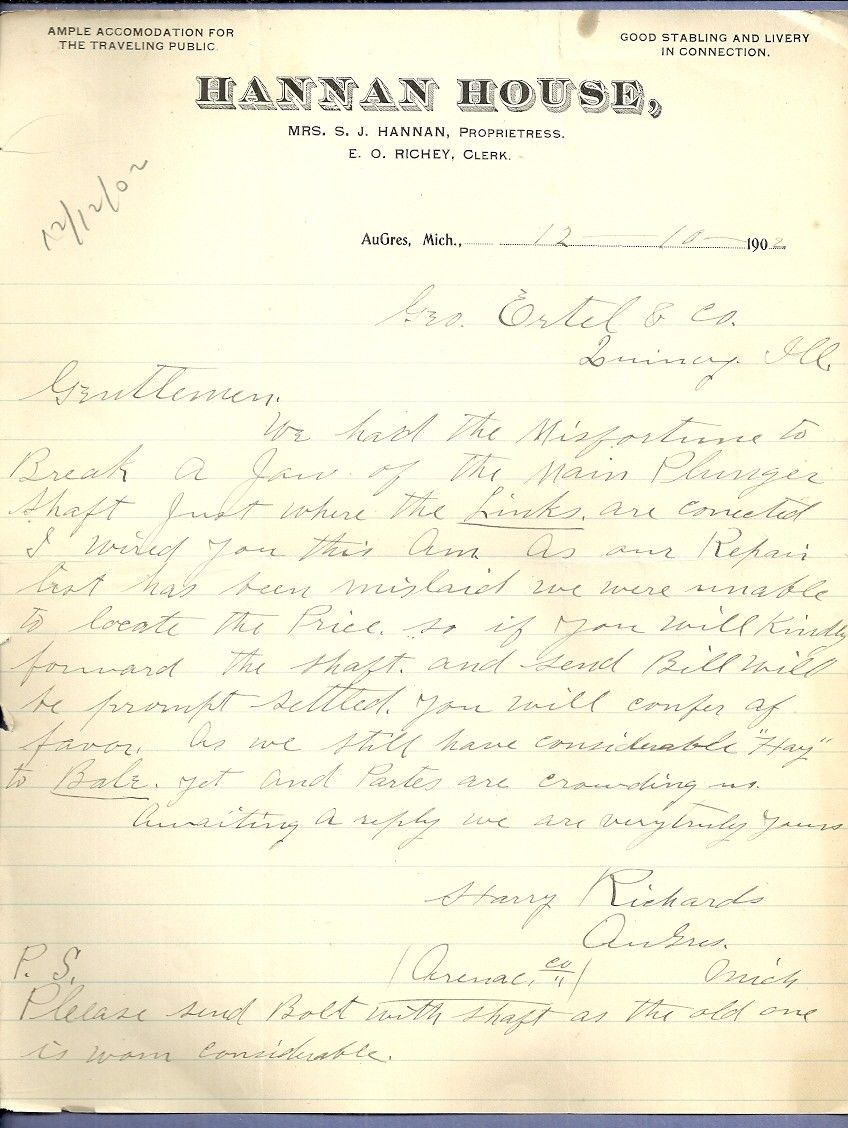 AMPLE ACCOMODATION FOR
THE TRAVELING PUBLIC.
GOOD STABLING AND LIVERY
IN CONNECTION.
HANNAN HOUSE,
MRS. S. J. HANNAN, PROPRIETRESS.
E. O. RICHEY, CLERK.
12/12/02
AuGres, Mich., 12 — 10 — 1902
Geo. Ertel & Co.
Quincy. Ill.
Gentlemen.
We had the Misfortune to
Break a Jaw of the Main Plunger
shaft Just where the Links. are conected
I wired you this Am. As our Repair
List has been mislaid we were unable
to locate the Price. so if you will Kindly
forward the shaft. and send Bill will
be prompt settled. you will confer af
favor. As we still have considerable "Hay"
to Bale. yet and Partes are crowding us.
Awaiting a reply we are verytruly yours
Harry Richards
AuGres.
(Arenac, co) Mich
P. S.
Plelase send Bolt with shaft as the old one
is worn considerable.